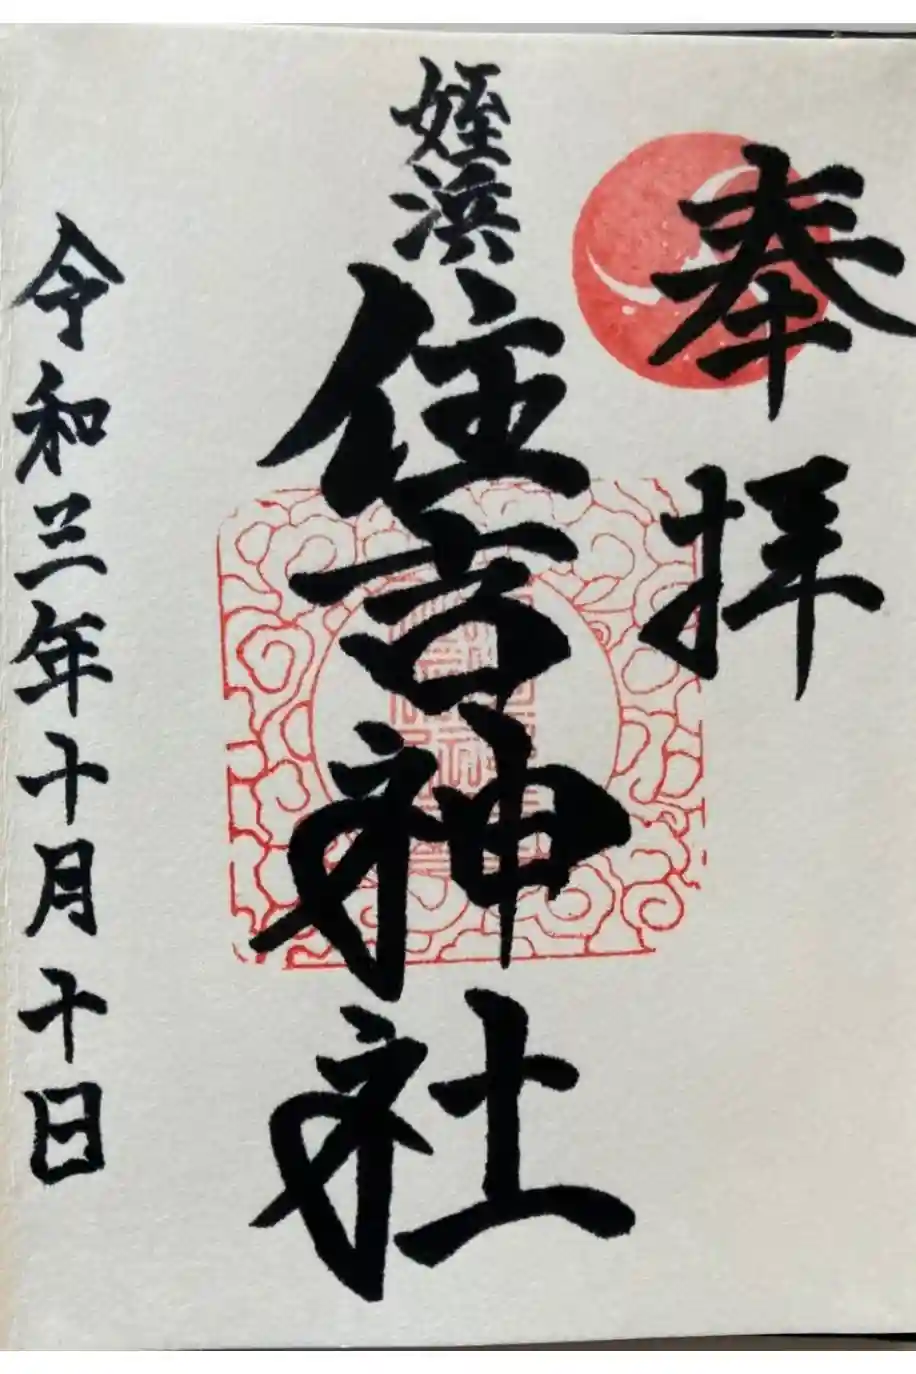 奉拝
姪浜
住吉神社
令和三年十月十日